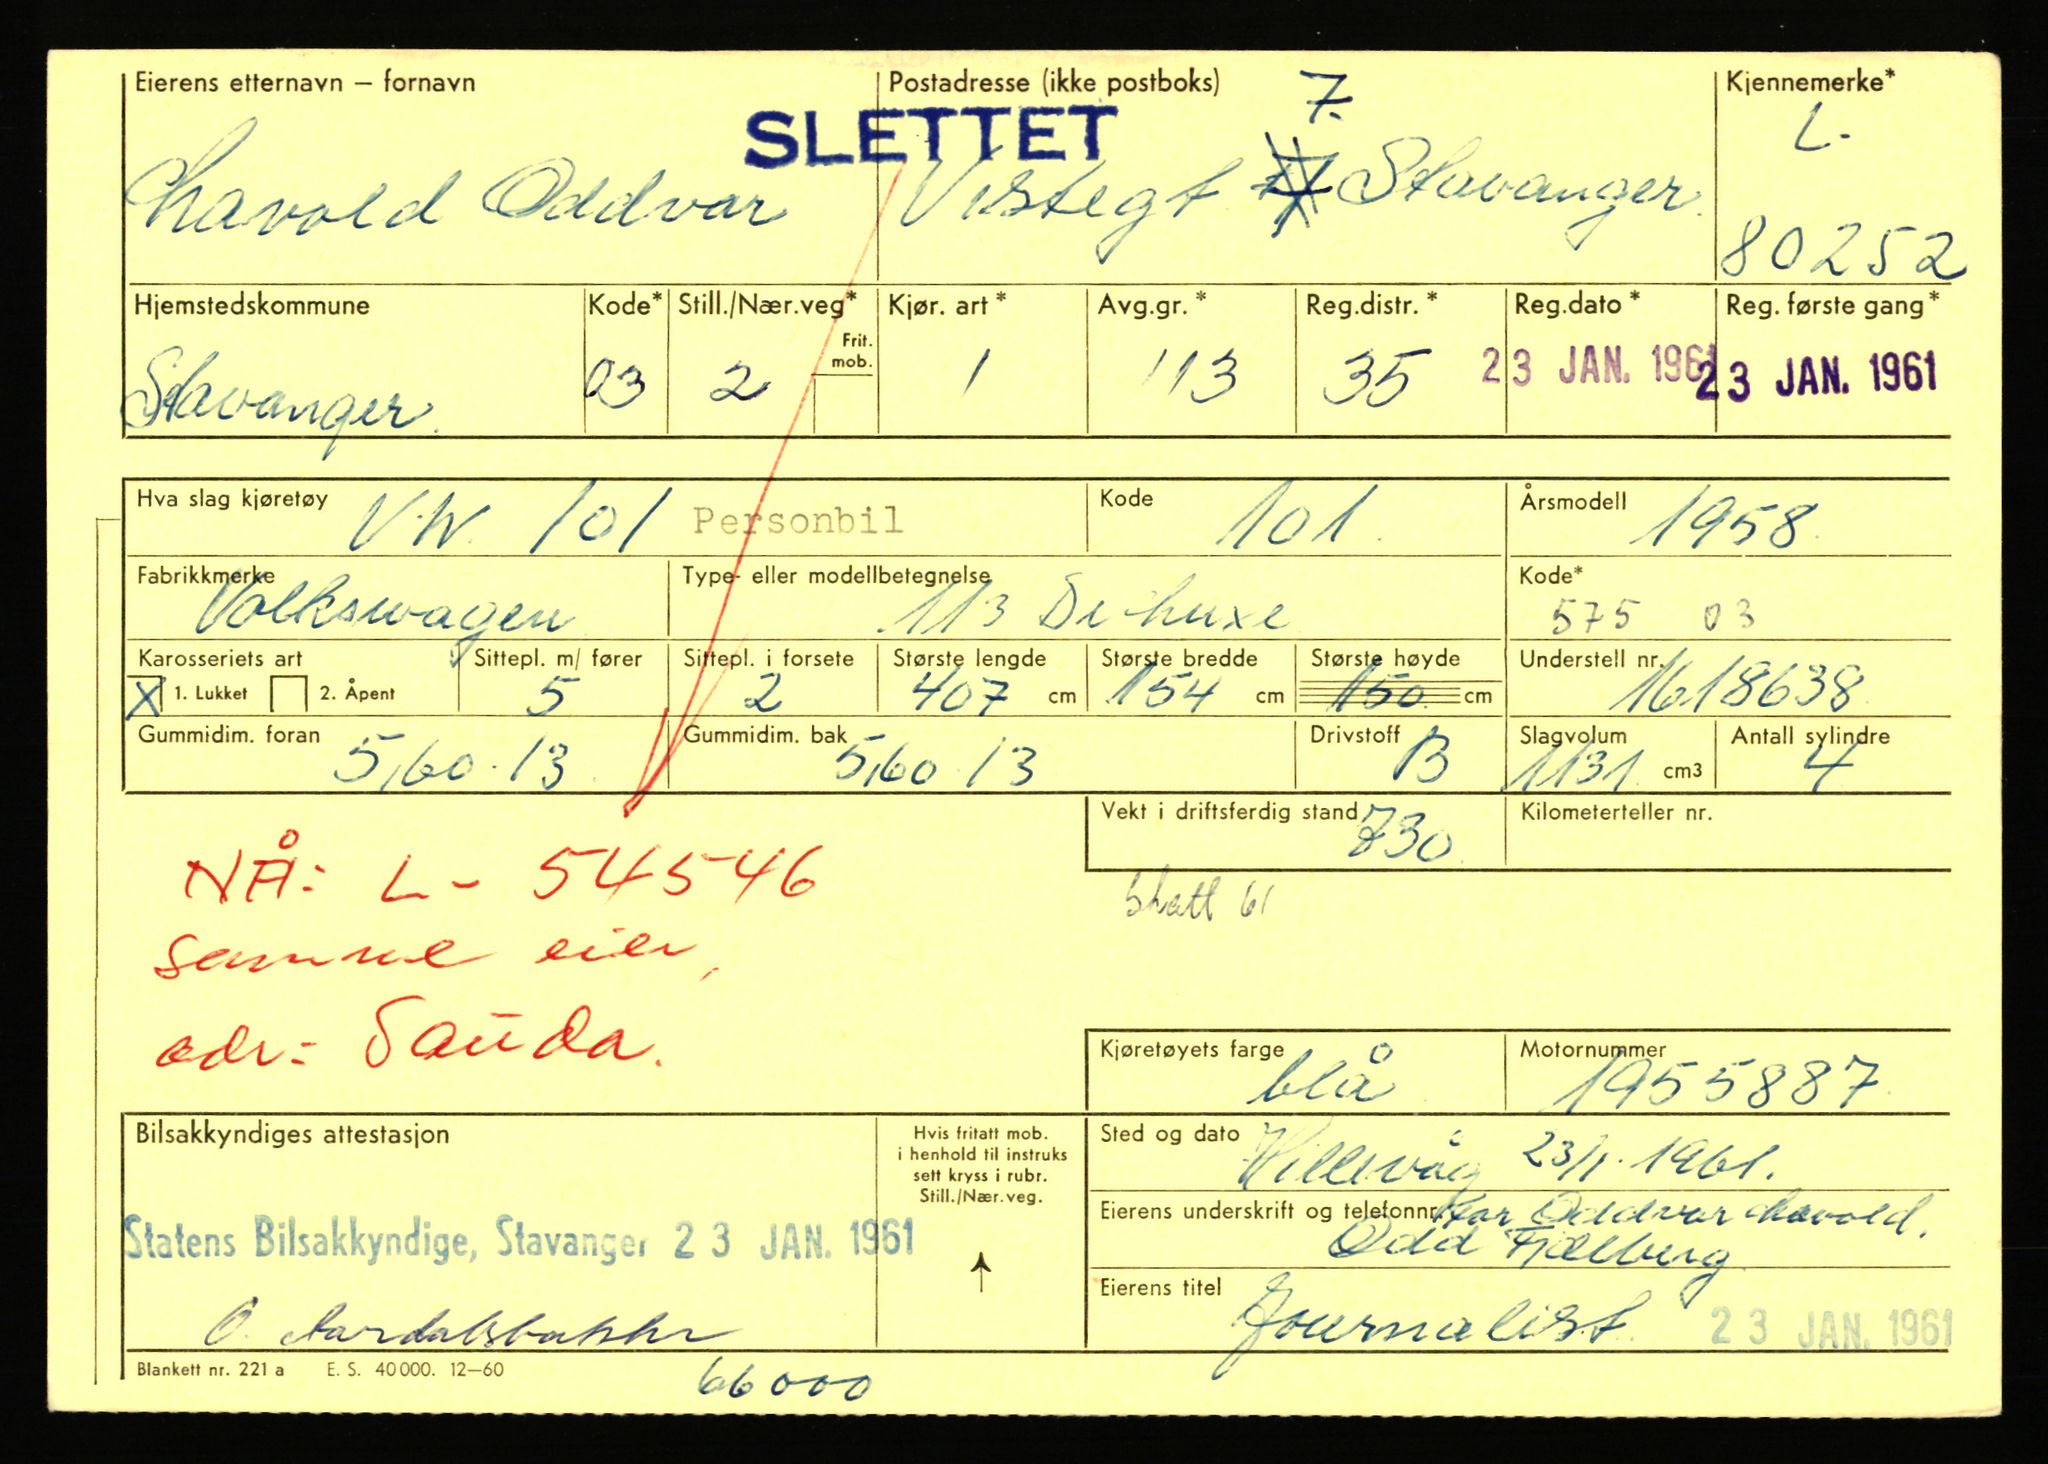 Eierens etternavn – fornavn Postadresse (ikke postboks) 7. Kjennemerke*
SLETTET L-
Lavold Oddvar Vistegt. Stavanger.
80252
Hjemstedskommune Kode* Still./Nær.veg* Kjør. art* Avg.gr.* Reg.distr.* Reg.dato* Reg. første gang*
Frit. mob.
Stavanger. 03 2 1 113 35 23 JAN. 1961 23 JAN. 1961
Hva slag kjøretøy V.W. 101 Personbil Kode 101. Årsmodell 1958.
Fabrikkmerke Volkswagen Type- eller modellbetegnelse 113 De-luxe Kode* 575 03
Karosseriets art Sittepl. m/ fører Sittepl. i forsete Største lengde Største bredde Største høyde Understell nr.
X 1. Lukket 2. Åpent 5 2 407 cm 154 cm 150 cm 1618638.
Gummidim. foran Gummidim. bak Drivstoff Slagvolum Antall sylindre
5,60.13. 5,60 13 B 1131. cm3 4
Vekt i driftsferdig stand 730. Kilometerteller nr.
NÅ: L- 54546
samme eier,
adr: Sauda.
Skatt 61
Kjøretøyets farge blå Motornummer 1955887.
Bilsakkyndiges attestasjon
Hvis fritatt mob.
i henhold til instruks
sett kryss i rubr.
Still./Nær.veg.
Sted og dato Hillevåg 23/1. 1961.
Eierens underskrift og telefonnr. for Oddvar Lavold.
Odd Fjelberg
Statens Bilsakkyndige, Stavanger 23 JAN. 1961
Eierens titel Journalist. 23 JAN. 1961
Blankett nr. 221 a E. S. 40000. 12–60 66000